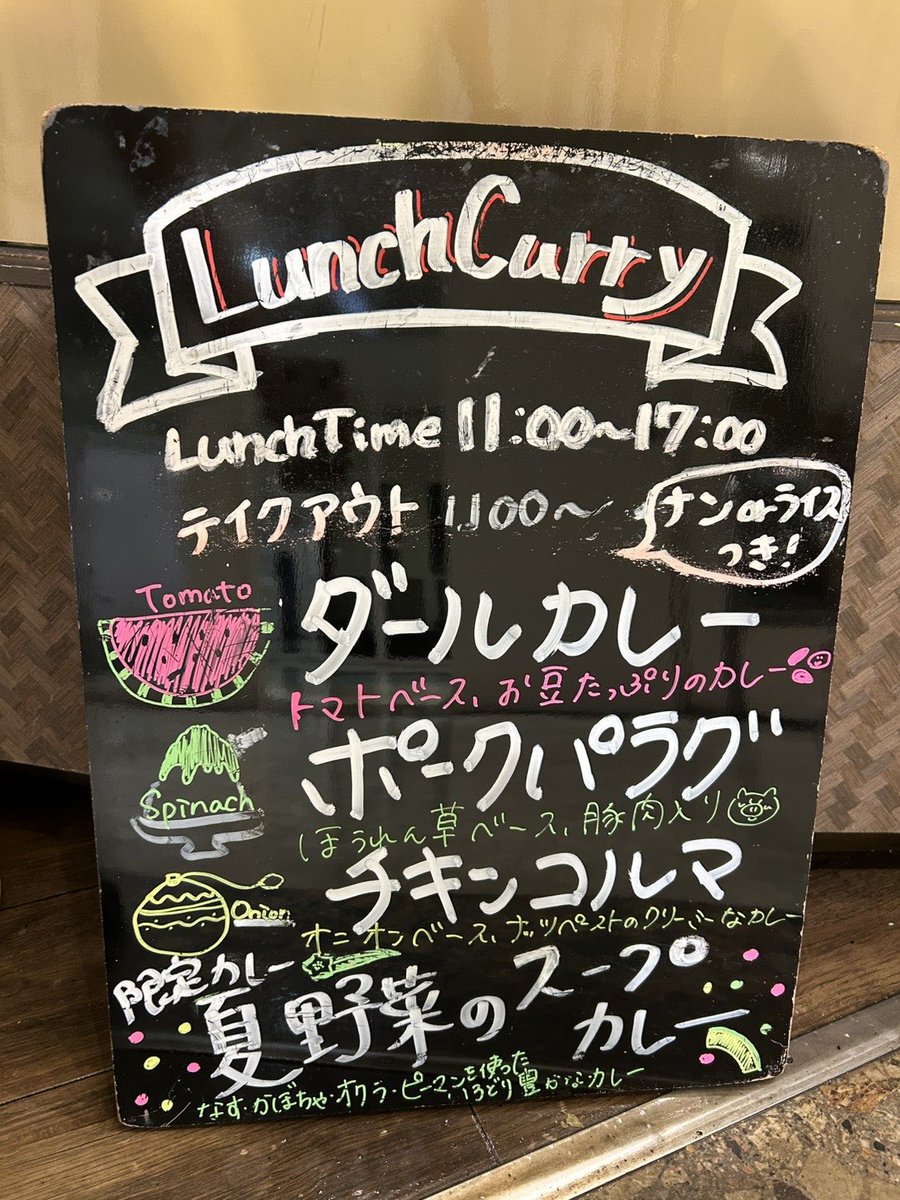 LunchCurry
LunchTime 11:00~17:00
テイクアウト 11:00~
ナンorライス
つき!
Tomato
ダールカレー
トマトベース、お豆たっぷりのカレー
Spinach
ポークパラグ
ほうれん草ベース、豚肉入り
Onion
チキンコルマ
オニオンベース、ナッツペーストのクリーミーなカレー
限定カレー
夏野菜のスープカレー
なす・かぼちゃ・オクラ・ピーマンを使った
いろどり豊かなカレー